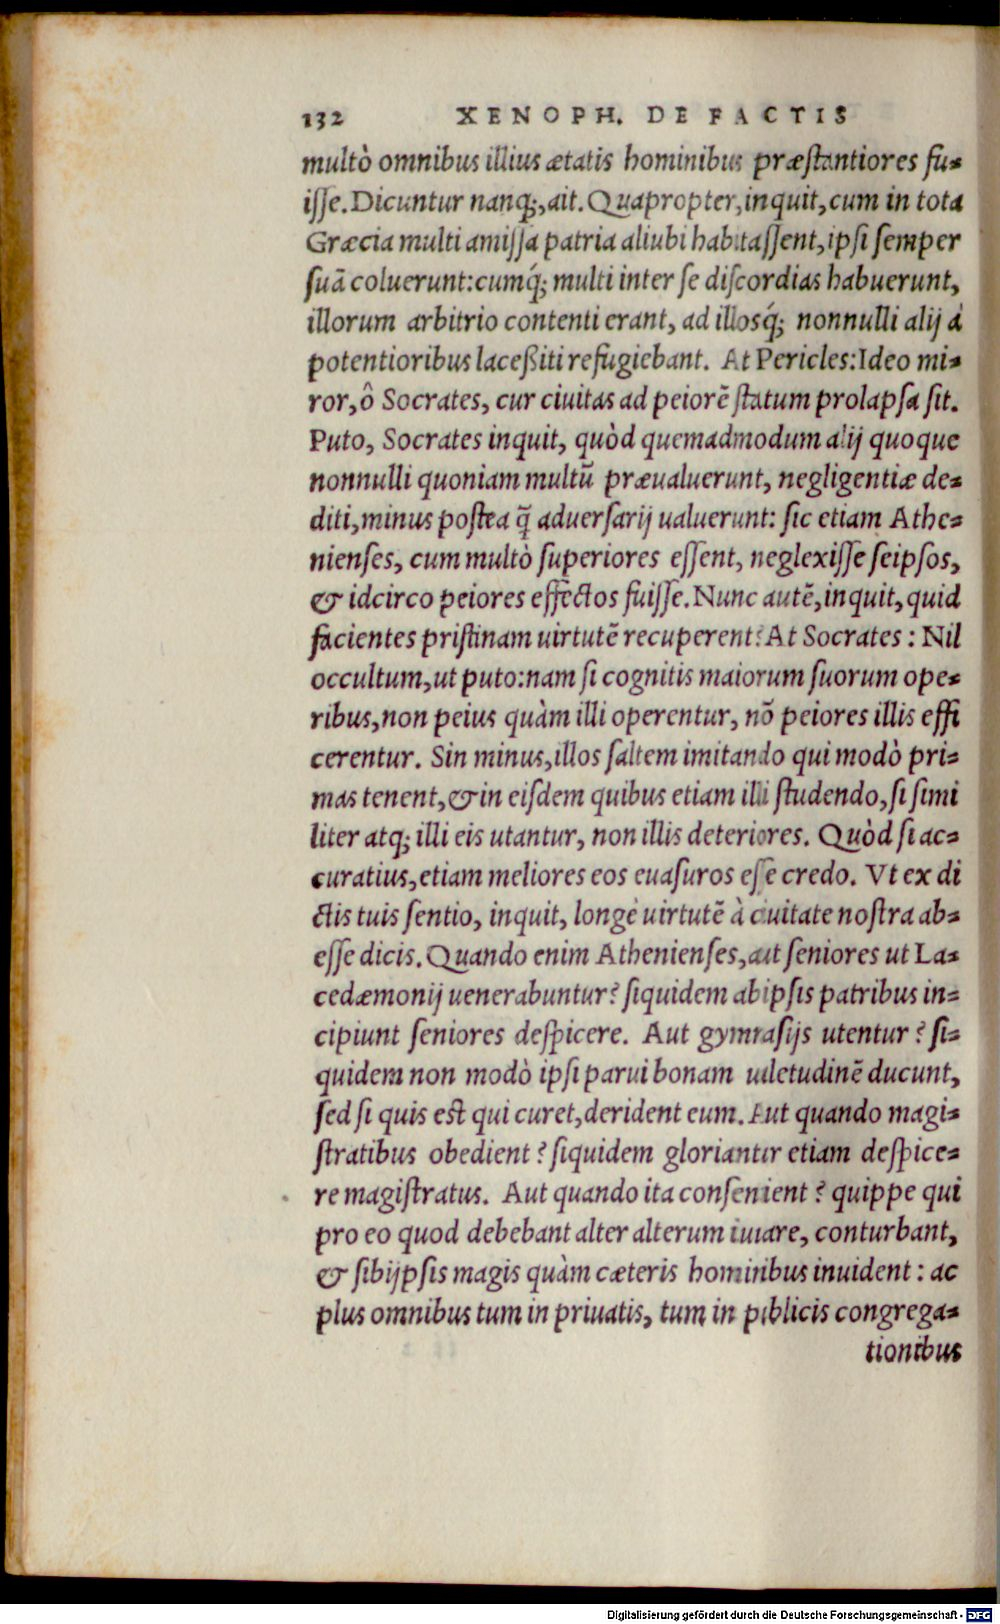 132 XENOPH. DE FACTIS
multò omnibus illius ætatis hominibus præſtantiores fu-
iſſe. Dicuntur nanq;, ait. Quapropter, inquit, cum in tota
Græcia multi amiſſa patria aliubi habitaſſent, ipſi ſemper
ſuā coluerunt: cumq́; multi inter ſe diſcordias habuerunt,
illorum arbitrio contenti erant, ad illosq́; nonnulli alij à
potentioribus laceßiti refugiebant. At Pericles: Ideo mi-
ror, ô Socrates, cur ciuitas ad peiorē ſtatum prolapſa ſit.
Puto, Socrates inquit, quòd quemadmodum alij quoque
nonnulli quoniam multū præualuerunt, negligentiæ de-
diti, minus poſtea q̃ aduerſarij ualuerunt: ſic etiam Athe-
nienſes, cum multò ſuperiores eſſent, neglexiſſe ſeipſos,
& idcirco peiores effectos fuiſſe. Nunc autē, inquit, quid
facientes priſtinam uirtutē recuperent? At Socrates: Nil
occultum, ut puto: nam ſi cognitis maiorum ſuorum ope-
ribus, non peius quàm illi operentur, nō peiores illis effi
cerentur. Sin minus, illos ſaltem imitando qui modò pri-
mas tenent, & in eiſdem quibus etiam illi ſtudendo, ſi ſimi
liter atq; illi eis utantur, non illis deteriores. Quòd ſi ac-
curatius, etiam meliores eos euaſuros eſſe credo. Vt ex di
ctis tuis ſentio, inquit, longè uirtutē à ciuitate noſtra ab-
eſſe dicis. Quando enim Athenienſes, ait ſeniores ut La-
cedæmonij uenerabuntur? ſiquidem ab ipſis patribus in-
cipiunt ſeniores deſpicere. Aut gymnaſijs utentur? ſi-
quidem non modò ipſi parui bonam ualetudinē ducunt,
ſed ſi quis eſt qui curet, derident eum. Aut quando magi-
ſtratibus obedient? ſiquidem gloriantur etiam deſpice-
re magiſtratus. Aut quando ita conſenient? quippe qui
pro eo quod debebant alter alterum iuuare, conturbant,
& ſibijpſis magis quàm cæteris hominibus inuident: ac
plus omnibus tum in priuatis, tum in publicis congrega-
tionibus
Digitalisierung gefördert durch die Deutsche Forschungsgemeinschaft - DFG